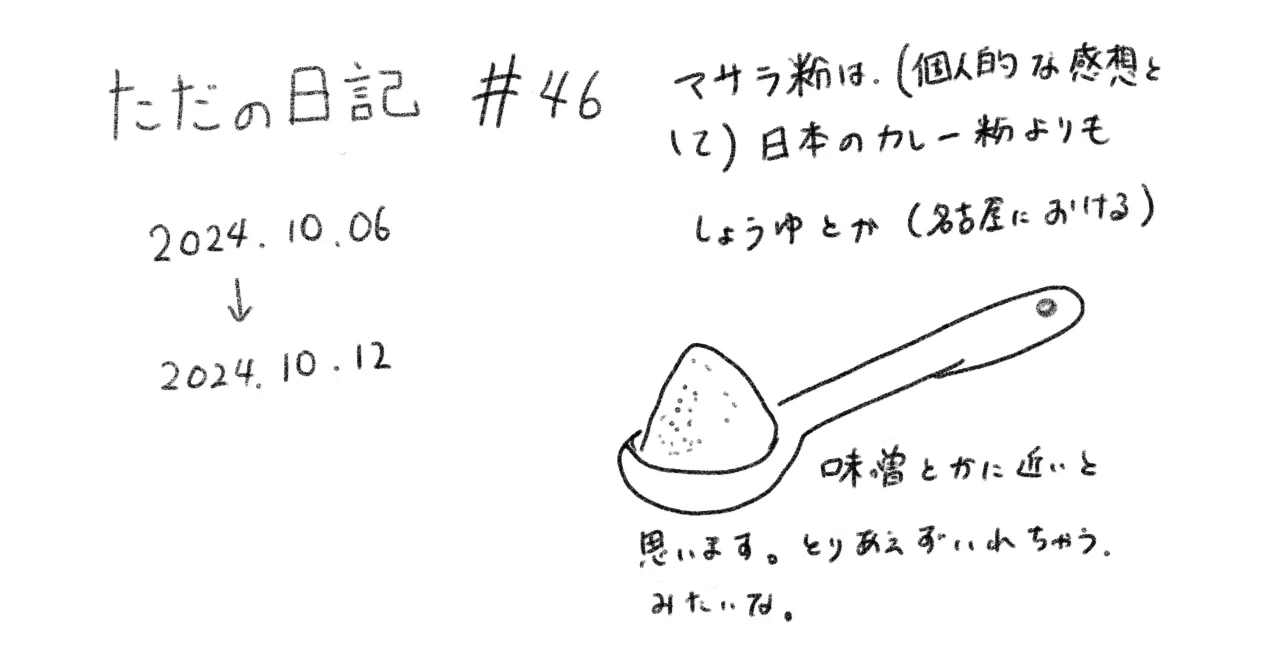 ただの日記 #46
2024.10.06
↓
2024.10.12
マサラ粉は.(個人的な感想と
して)日本のカレー粉よりも
しょうゆとか(名古屋における)
味噌とかに近いと
思います。とりあえずいれちゃう.
みたいな。